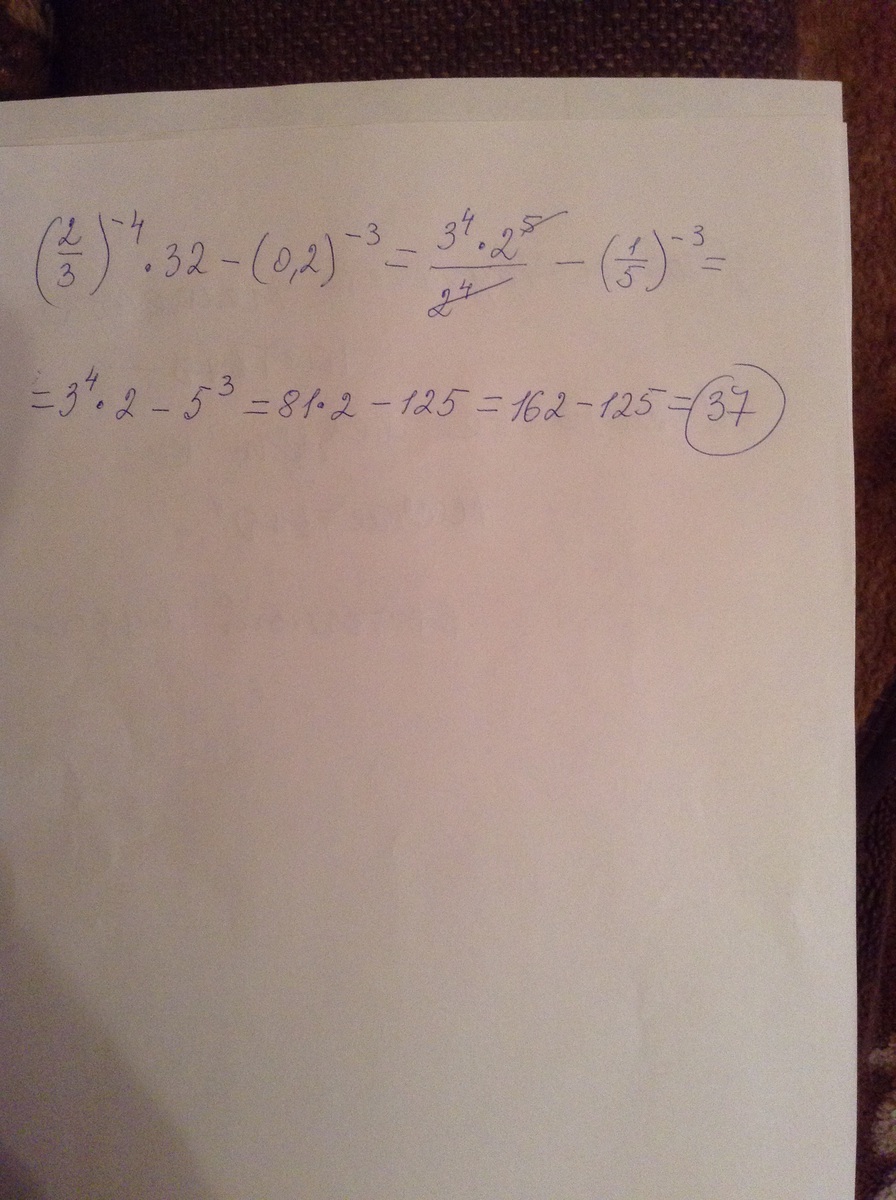 (2/3)⁻⁴ · 32 − (0,2)⁻³ = (3⁴ · 2⁵)/2⁴ − (1/5)⁻³ =
= 3⁴ · 2 − 5³ = 81 · 2 − 125 = 162 − 125 = 37